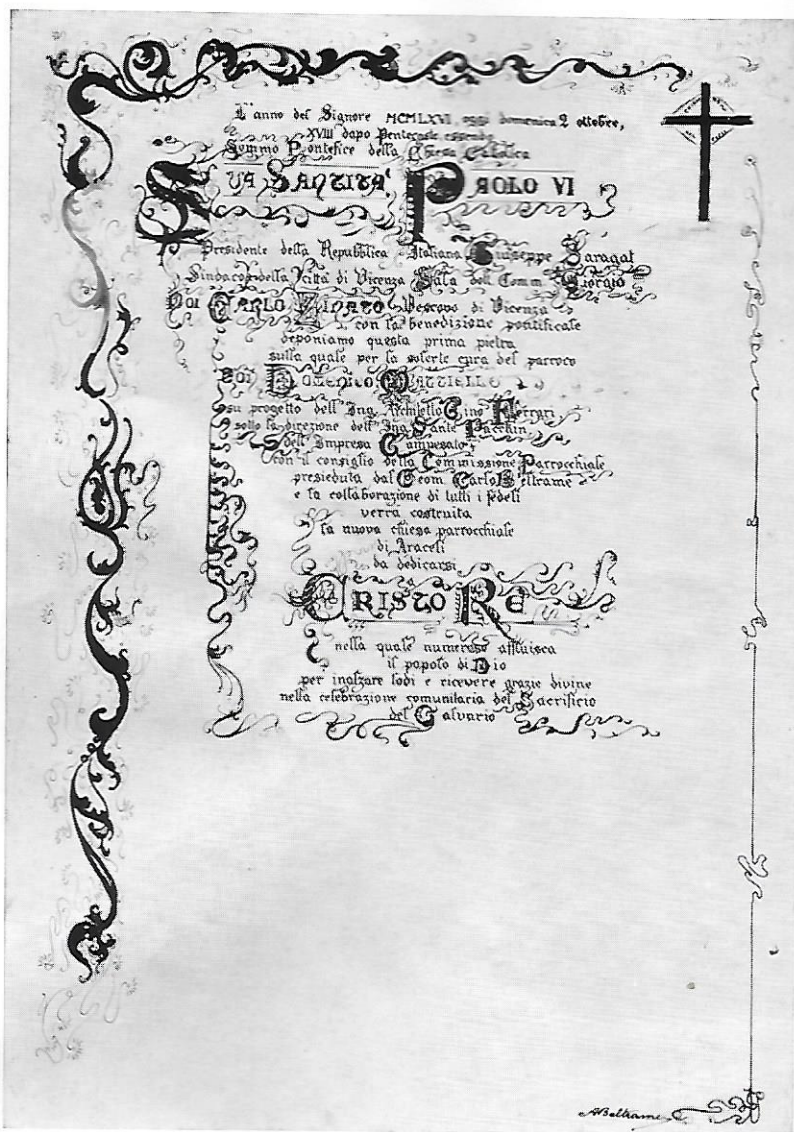 L'anno del Signore MCMLXVI, oggi domenica 2 ottobre,
XVIII dopo Pentecoste essendo
Sommo Pontefice della Chiesa Cattolica
SUA SANTITA' PAOLO VI
Presidente della Repubblica Italiana Giuseppe Saragat
Sindaco della Città di Vicenza Sala dott. Comm. Giorgio
Noi CARLO ZINATO Vescovo di Vicenza
con la benedizione pontificale
deponiamo questa prima pietra
sulla quale per la solerte cura del parroco
Don DOMENICO MATTIELLO
su progetto dell'Ing. Architetto Gino Ferrari
sotto la direzione dell'Ing. Sante Pacchin
dell'Impresa Campesato,
con il consiglio della Commissione Parrocchiale
presieduta dal Geom. Carlo Beltrame
e la collaborazione di tutti i fedeli
verrà costruita
la nuova chiesa parrocchiale
di Araceli
da dedicarsi
a CRISTO RE
nella quale numeroso affluisca
il popolo di Dio
per inalzare lodi e ricevere grazie divine
nella celebrazione comunitaria del Sacrificio
del Calvario
ABeltrame